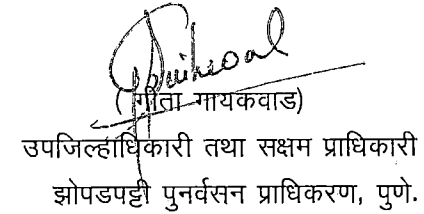 ( गीता गायकवाड)
उपजिल्हाधिकारी तथा सक्षम प्राधिकारी
झोपडपट्टी पुनर्वसन प्राधिकरण, पुणे.